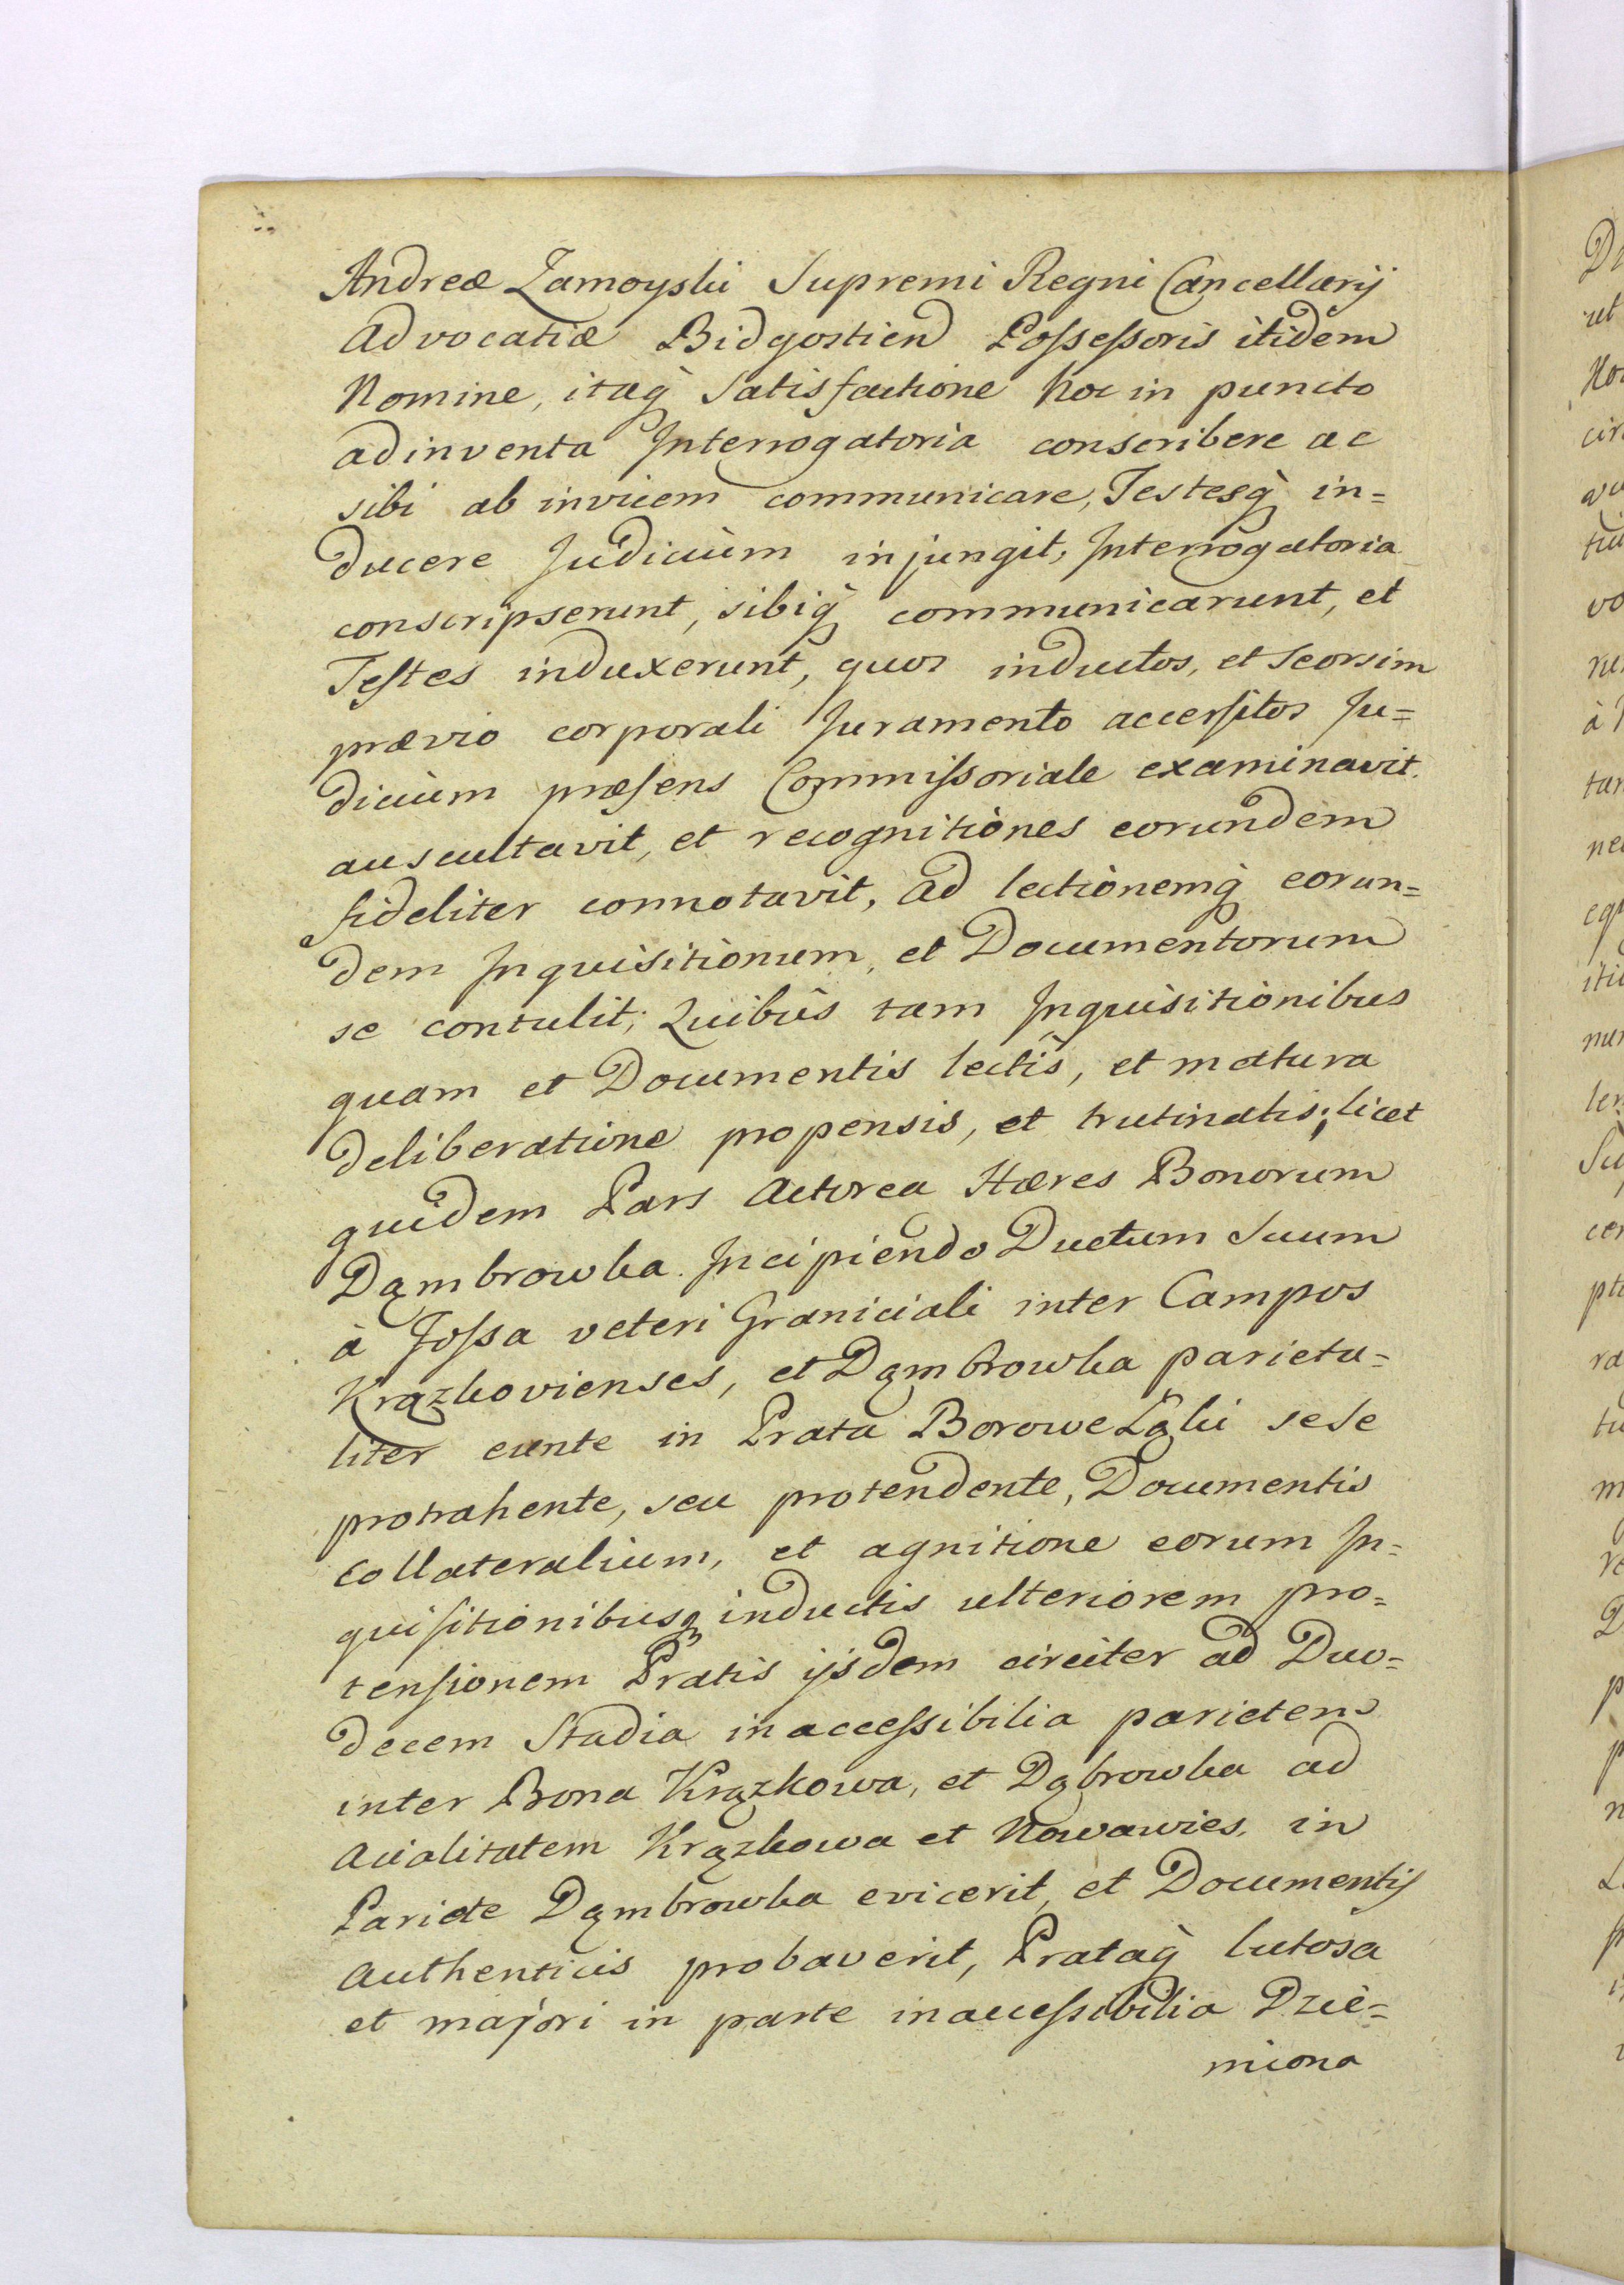 Andreæ Zamoyski Supremi Regni Cancellarij
Advocatiæ Bidgostien Possessoris itidem
Nomine, itaq̀ Satisfactione hoc in puncto
adinventa Interrogatoria conscribere ac
sibi ab invicem communicare, Testesq̀ in=
ducere Judicium injungit, Interrogatoria
conscripserunt, sibiq̀ communicarunt, et
Testes induxerunt, quos inductos, et Seorsim
prævio corporali Juramento accersitos Ju=
dicium præsens Commissoriale examinavit.
auscultavit, et recognitiones eorundem
fideliter connotavit, ad lectionemq̀ eorun=
dem Inquisitionum, et Documentorum
se contulit; Quibus tam Inquisitionibus
quam et Documentis lectis, et matura
deliberatione propensis, et trutinatis; licet
quidem Pars Actorea Hæres Bonorum
Dąmbrowka. Incipiendo Ductum Suum
à Fossa veteri Graniciali inter Campos
Krązkovienses, et Dąmbrowka parieta=
liter eunte in Prata Borowe Łąki sese
protrahente, seu protendente, Documentis
collateralium, et agnitione eorum In=
quisitionibusq̀ inductis ulteriorem pro=
tensionem Pratis ijsdem circiter ad Duo=
decem Stadia inaccessibilia parietem
inter Bona Krązkowa, et Dąbrowka ad
Acialitatem Krązkowa et Nowawies, in
Pariete Dąmbrowka evicerit, et Documentis
Authenticis probaverit, Prataq̀ lutosa
et majori in parte inaccessibilia Dzie=
miona